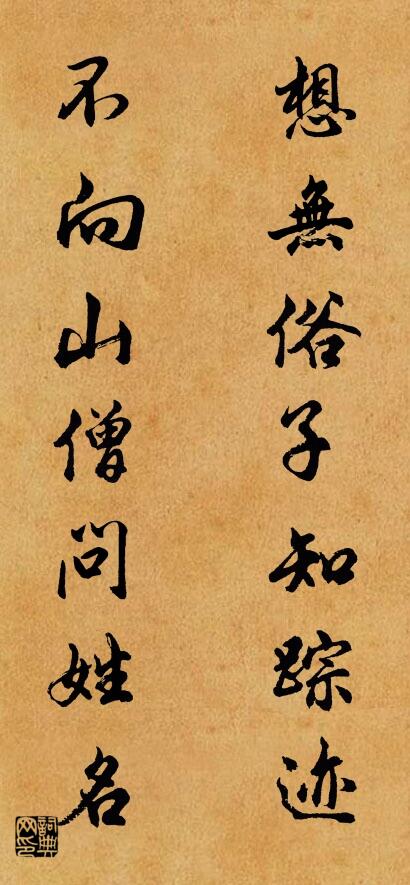 想無俗子知踪迹
不向山僧問姓名
詞典网印